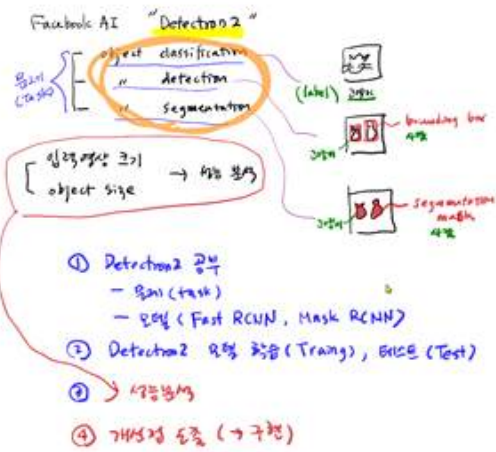 Facebook AI "Detectron2"
문제 (task)
object classification
" detection
" segmentation
(label) 고양이
bounding box
사람
고양이
segmentation mask
사람
고양이
입력영상 크기
object size
→ 성능 분석
① Detectron2 공부
- 문제 (task)
- 모델 (Fast RCNN, Mask RCNN)
② Detectron2 모델 학습 (Traing), 테스트 (Test)
③ 성능분석
④ 개선점 도출 (→ 구현)